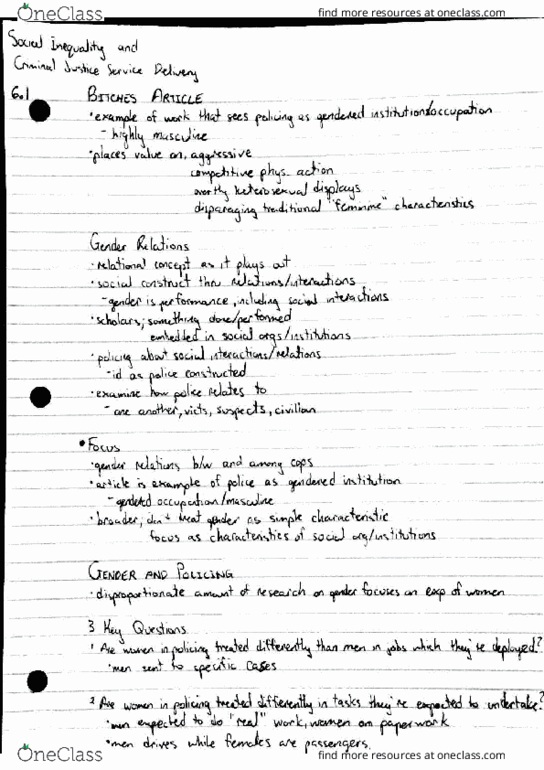 OneClass
find more resources at oneclass.com
Social Inequality and
Criminal Justice Service Delivery
6.1
BITCHES ARTICLE
• example of work that sees policing as gendered institution/occupation
- highly masculine
• places value on, aggressive
competitive phys. action
overtly heterosexual displays
disparaging traditional "feminine" characteristics
Gender Relations
• relational concept as it plays out
• social construct thru relations/interactions
- gender is performance, including social interactions
• scholars; something done/performed
embedded in social orgs/institutions
• policing about social interactions/relations
- id as police constructed
• examine how police relates to
- one another, victs, suspects, civilian
• Focus
• gender relations b/w and among cops
• article is example of police as gendered institution
- gendered occupation/masculine
• broader; don't treat gender as simple characteristic
focus as characteristics of social org/institutions
GENDER AND POLICING
• disproportionate amount of research on gender focuses on exp of women
3 Key Questions
1 Are women in policing treated differently than men in jobs which they're deployed?
• men sent to specific cases
2 Are women in policing treated differently in tasks they're expected to undertake?
• men expected to do "real" work, women on paperwork
• men drives while females are passengers
OneClass
find more resources at oneclass.com